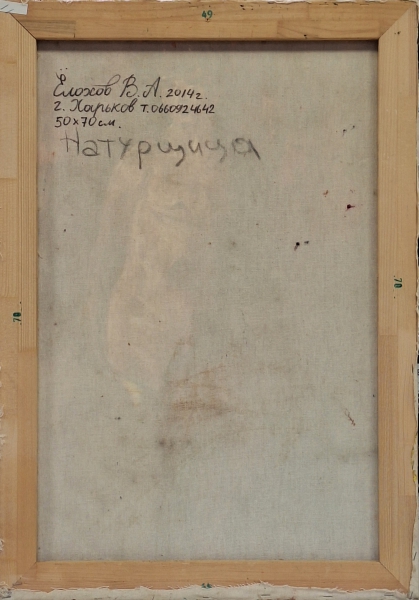 49
Ёлохов В.А. 2014г.
г. Харьков т.0660924642
50x70см.
Натурщица
70
70